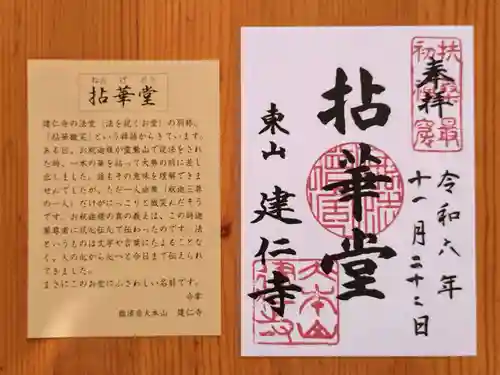 ねん げ どう
拈華堂
建仁寺の法堂（法を説くお堂）の別称。
「拈華微笑」という禅語からきています。
ある日、お釈迦様が霊鷲山で説法をされ
た時、一本の華を拈って大勢の前に差し
出しました。誰もその意味を理解できま
せんでしたが、ただ一人迦葉（釈迦三尊
の一人）だけがにっこりと微笑んだそう
です。お釈迦様の真の教えは、この時迦
葉尊者に以心伝心で伝わったのです。法
というものは文字や言葉にたよることな
く、人の心から心へと今日まで伝えられ
てきました。
まさにこのお堂にふさわしい名前です。
合掌
臨済宗大本山 建仁寺
扶桑最
初禅窟
奉拝
令和六年
十一月二十二日
拈華堂
東山 建仁寺
大本山
建仁寺